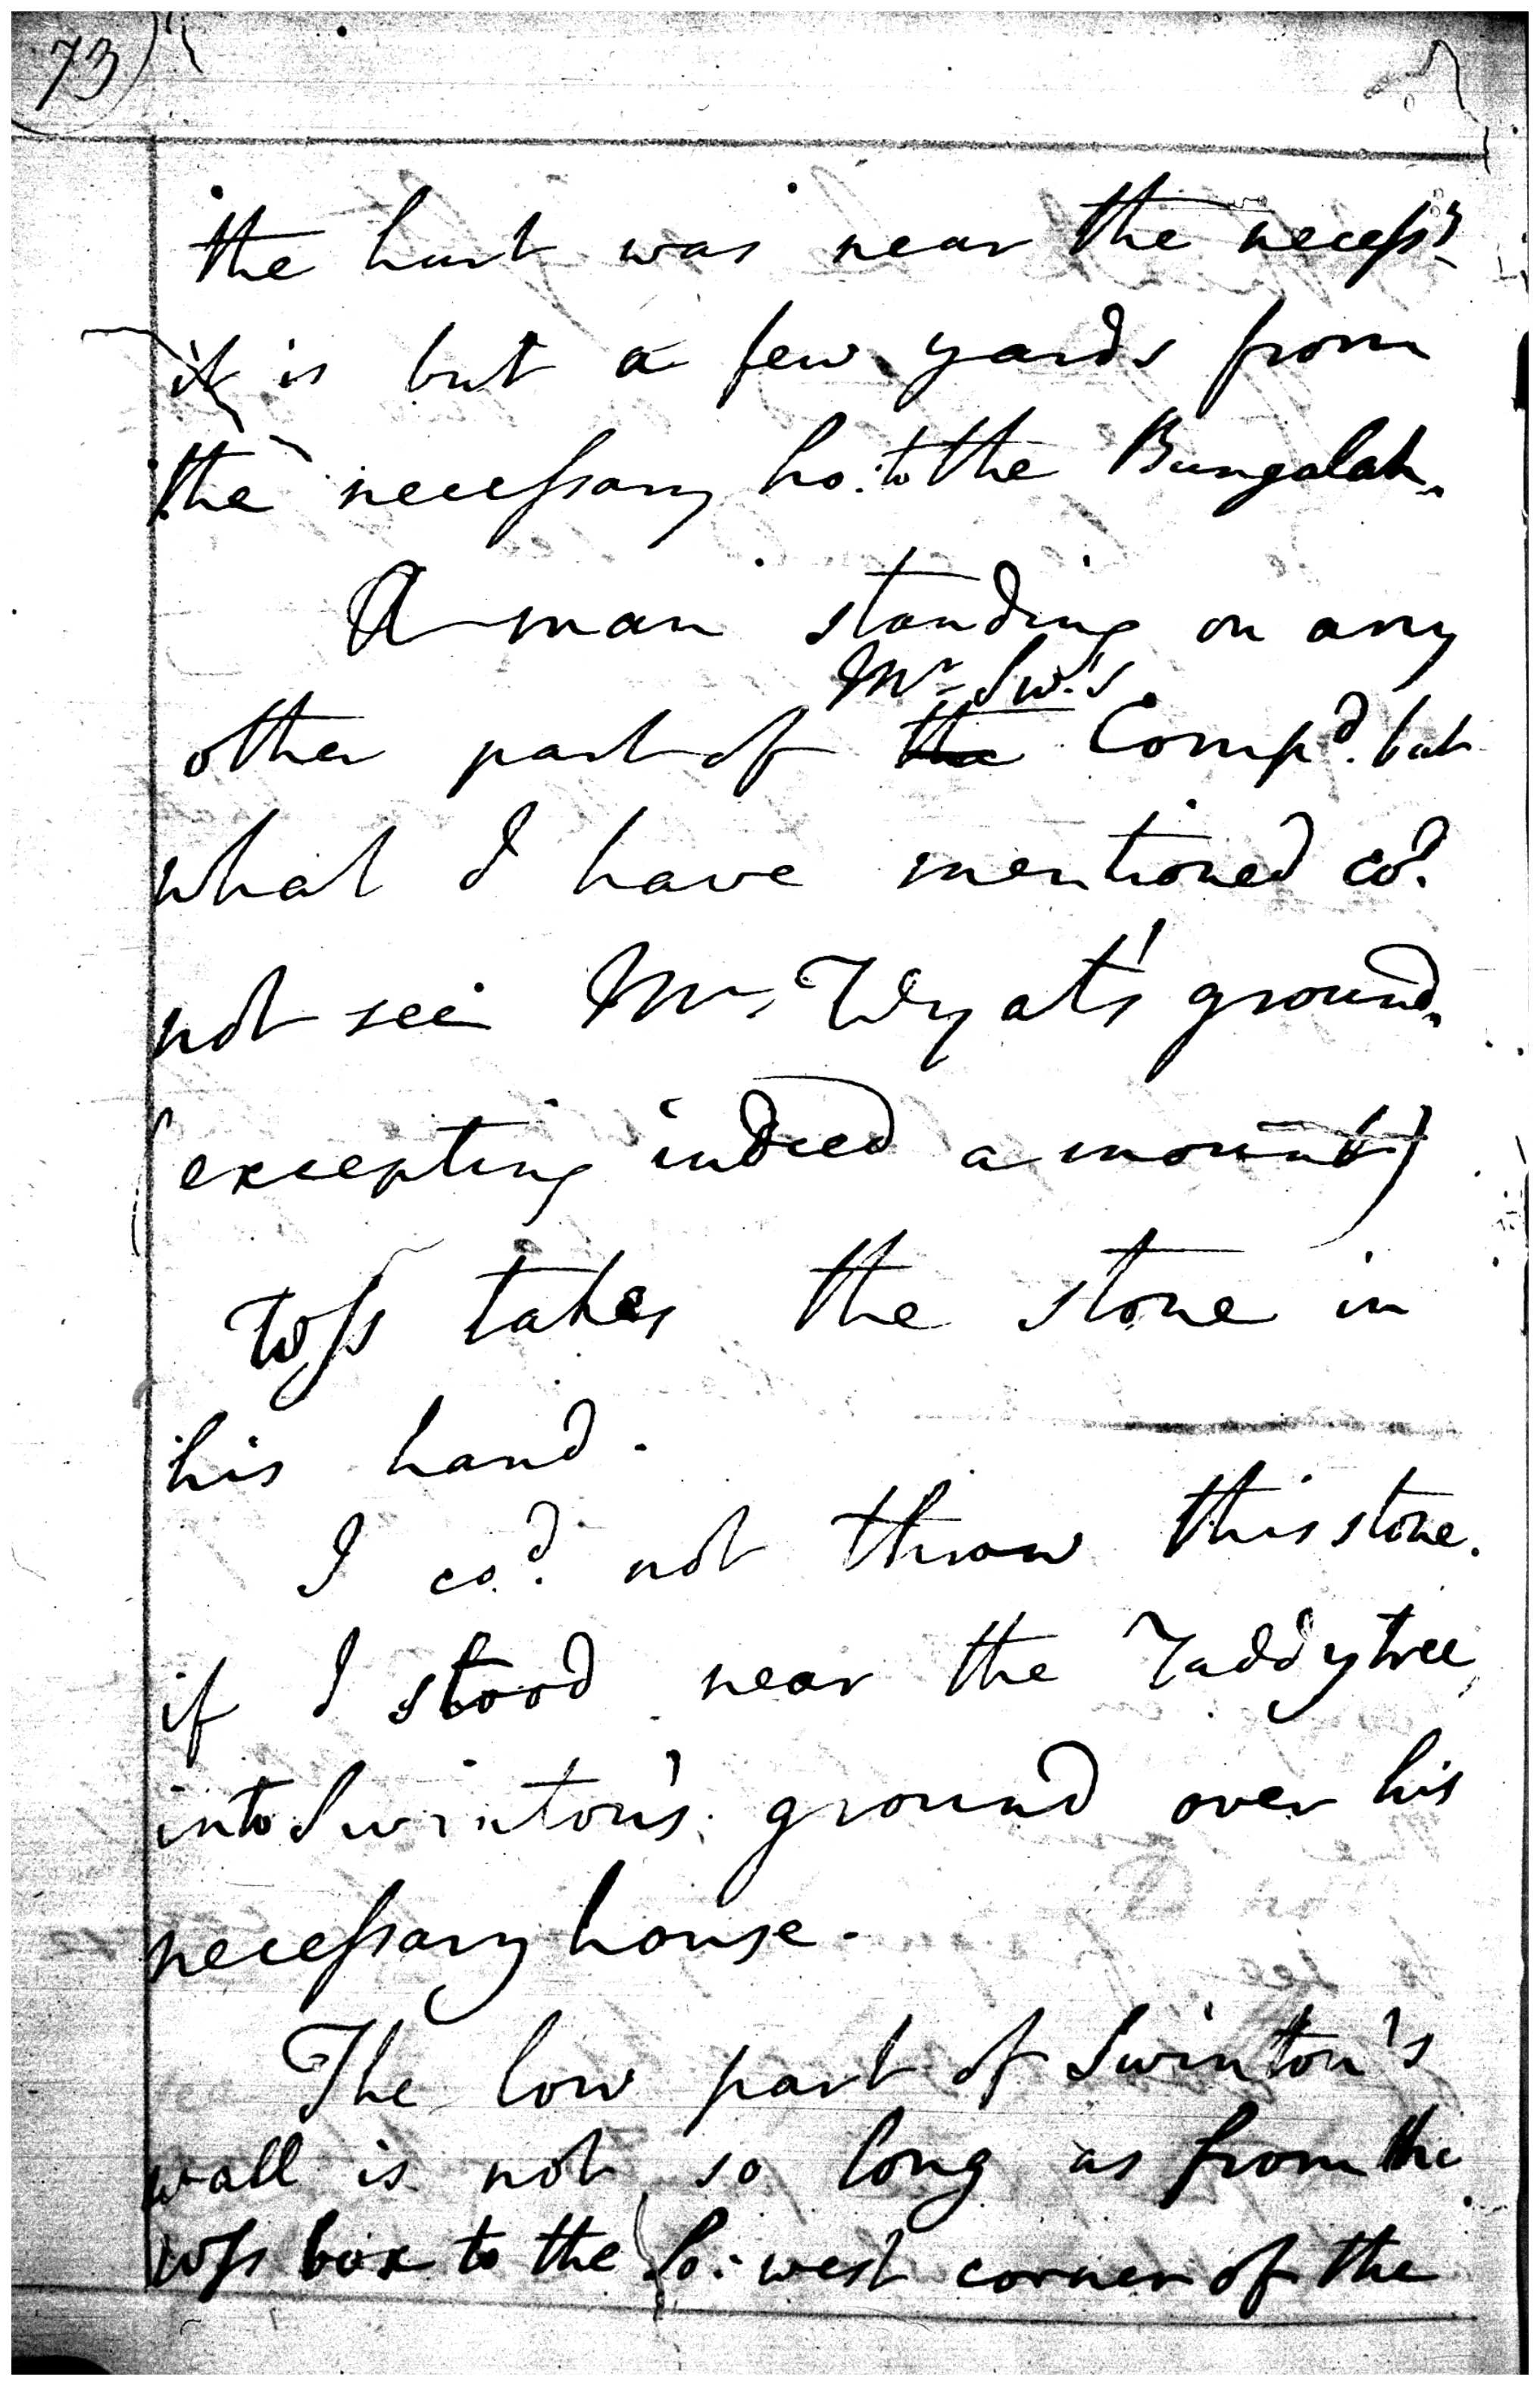 73
the hurt was near the necessy.
it is but a few yards from
the necessary ho: to the Bungalah.
A man standing on any
Mr. Sw.'s
other part of the Compd. but
what I have mentioned cod.
not see Mr. Wyat's ground.
(excepting indeed a mount)
Wss takes the stone in
his hand.
I cod. not throw this stone.
if I stood near the Taddytree,
into Swinton's ground over his
necessary house.
The low part of Swinton's
wall is not so long as from the
wss box to the So: west corner of the